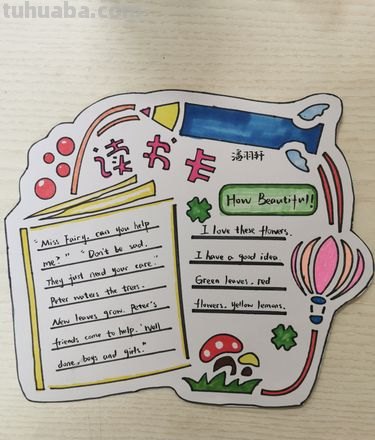 tuhuaba.com
读书卡
潘羽轩
How Beautiful!
"Miss Fairy, can you help
me?" "Don't be sad.
They just need your care."
Peter waters the trees.
New leaves grow. Peter's
friends come to help. "Well
done, boys and girls."
I love these flowers.
I have a good idea
Green leaves, red
flowers. yellow lemons.